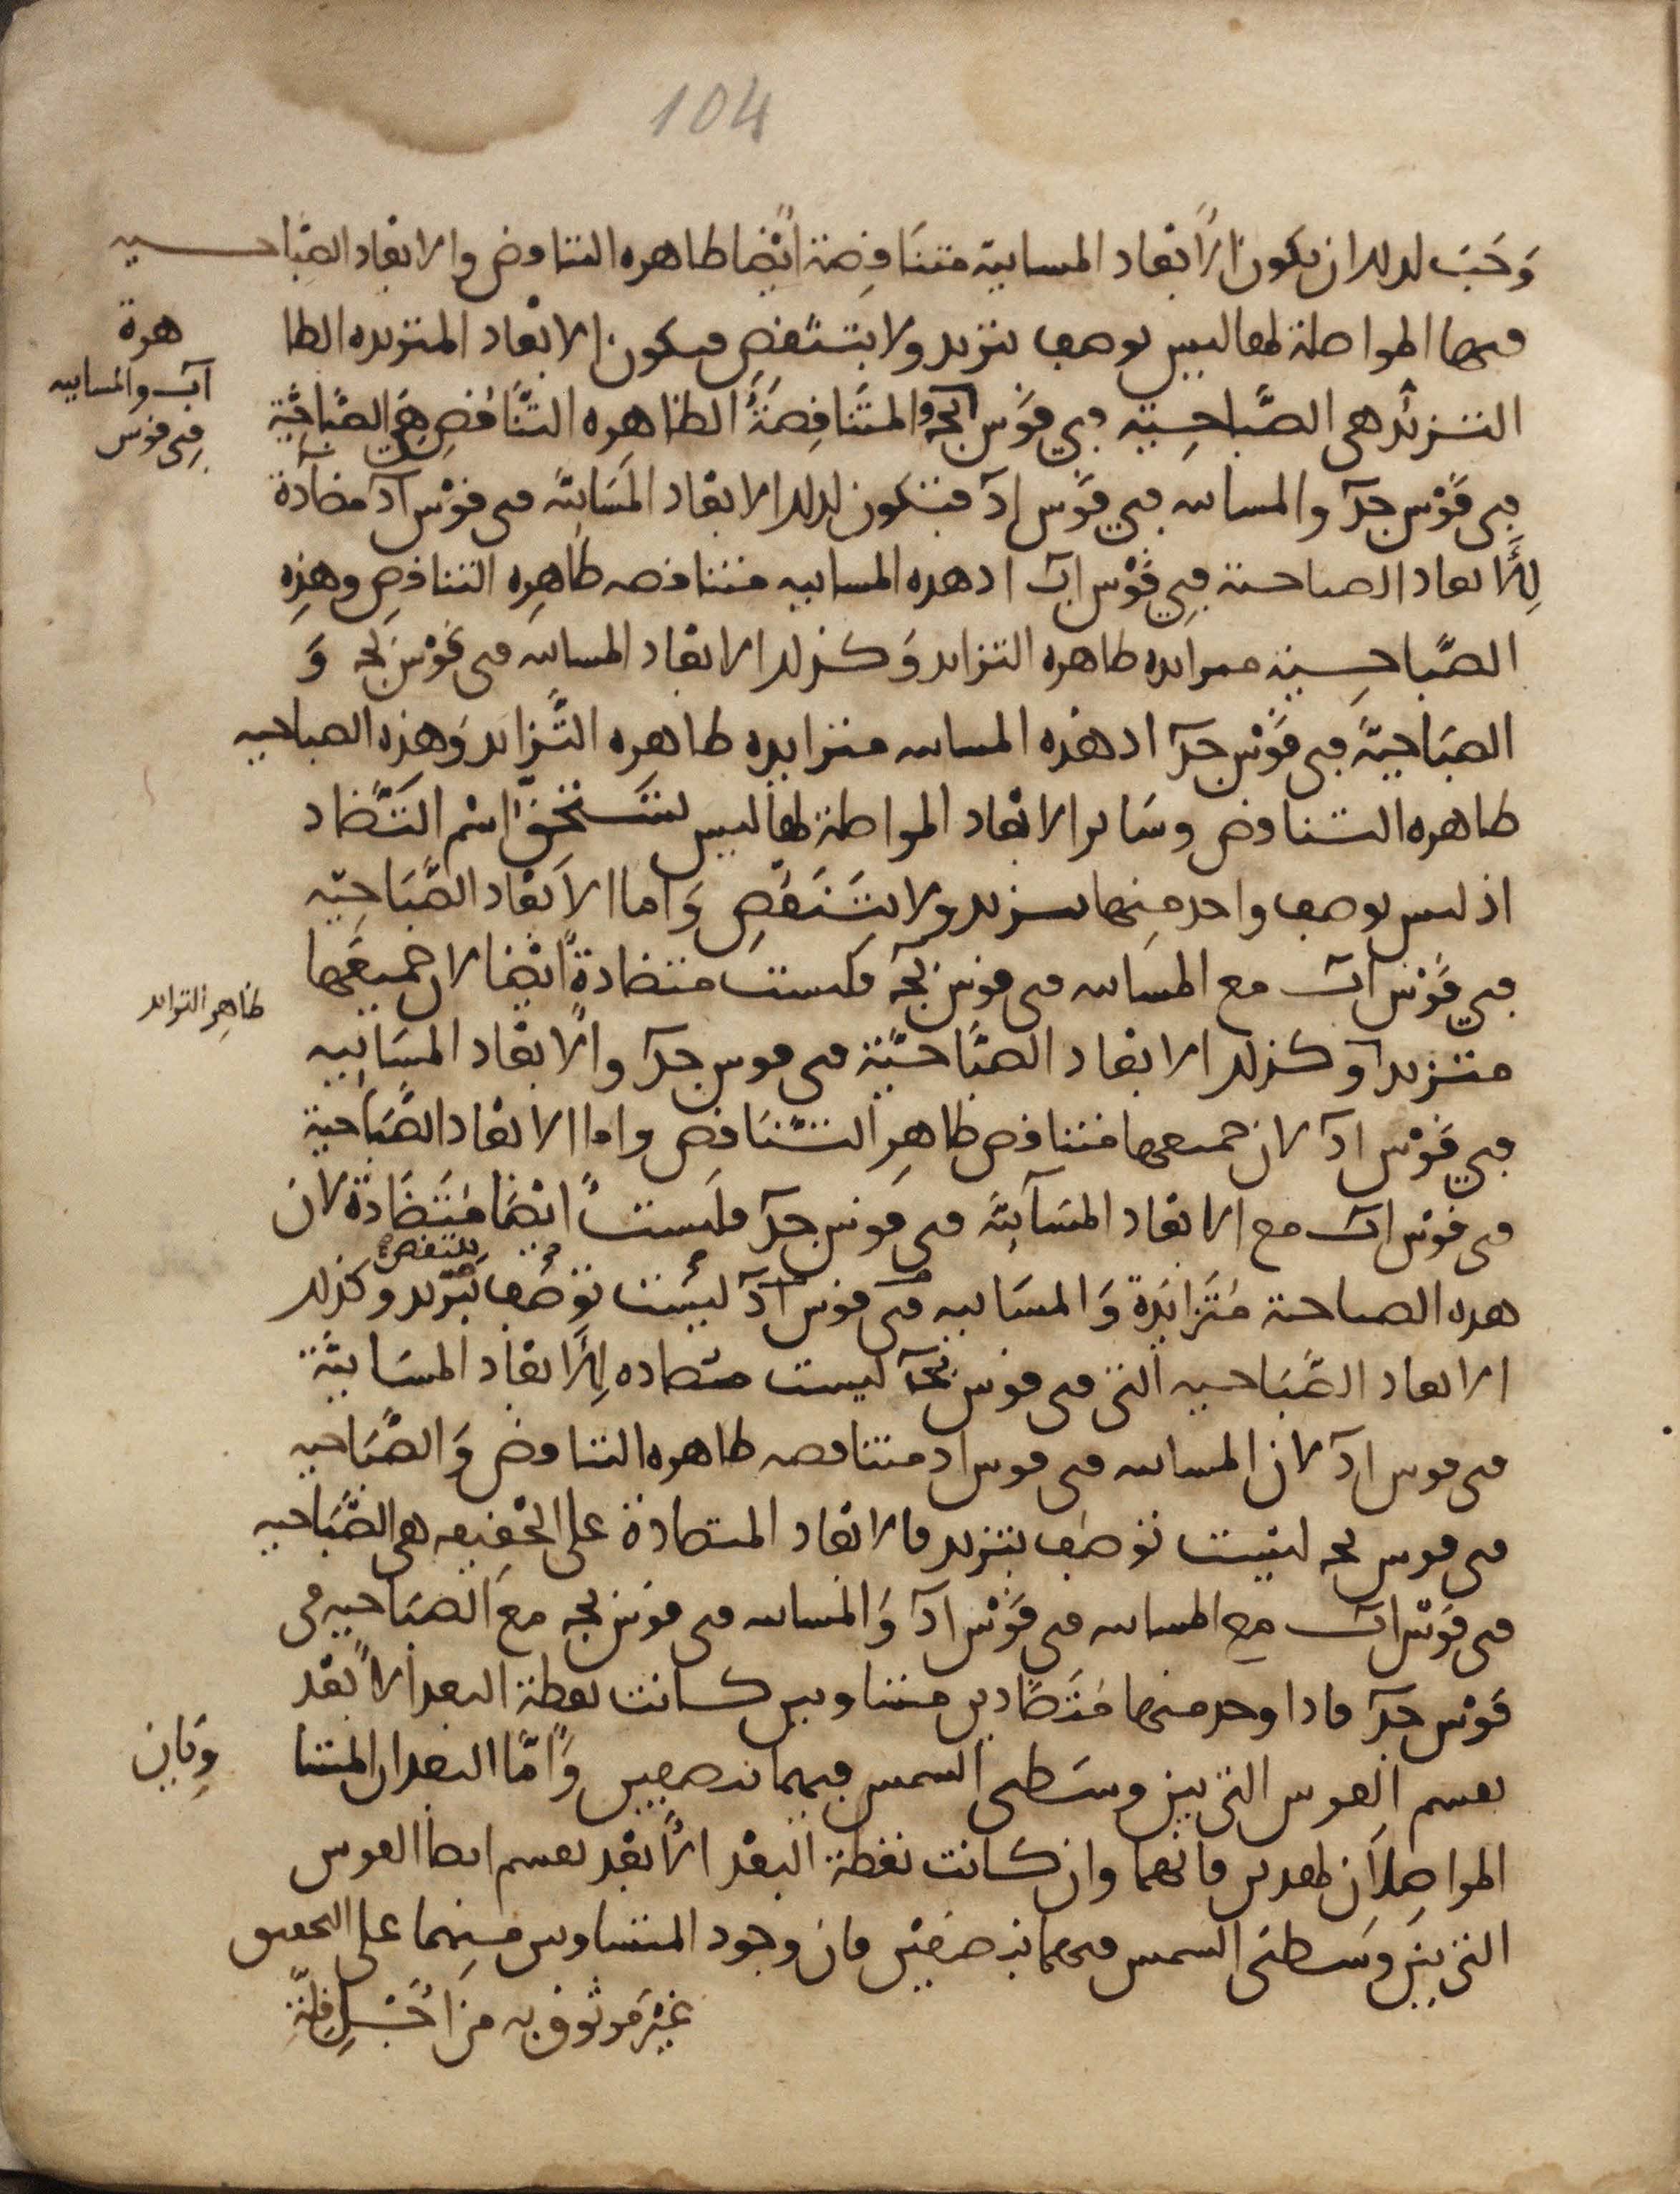 104
وَجَبَ لذلك ان تكون الأبعاد المسايية متنَاقِصَة ايْضا ظاهره التناقص والابعاد الصَّباحــيه
فيها المواصلة لها ليس توصف بتزيد ولا بتنقص فيكون الابعاد المتزيده الظا
هرة
التزيُّد هي الصَّباحِيّة في قوس اب والمسايه في قوس بج والمتَنَاقِصَةُ الظاهِره التَّنَاقُصِ هِيَ الصَّبَاحِيَّة
في قَوْس جد والمسايه في قوْس اد فتكون لذلك الابعاد المَسَايّة في قوْس اد مضادّة
لِلأَبعاد الصباحية فِي قَوْس اب اذ هذه المساييه متناقصه ظاهِره التناقصِ وهذِه
الصَّباحِيّة متزايده ظاهره التزايد وَكذلك الابعاد المسايه في قَوْس بج وَ
الصَبَاحِيَّة في قَوْس جد اذ هذه المسايه متزايده ظاهره التَّزايد وَهذه الصباحيه
ظاهره التناقص وسَاير الابعاد المواصلة لها ليس تَسْتَحِقّ اسْم التَّضَاد
اذ ليس يوصف واحد مِنها بتزيد ولا بتَنَقّصِ وَاما الاَبعَاد الصَّبَاحِيّه
في قَوْس اب مع المسَايه في قوس بج فليست متضادةً ايْضا لان جميعَها
متزيد ظاهِر التزايد وكذلك الابعاد الصبَاحيّة في قوس جد والأبعاد المسَايِيه
في قَوْس اد لان جميعها متناقص ظاهِر التنَاقص واما الابعاد الصَّبَاحِية
في قوْس اب مع الابعاد المسَآيّة في قوس جد فليست ايْضَا مُتَضَادّة لان
هذه الصباحية مُتَزايَدَة وَالمسَاييه في قوس اد ليْسَت تُوصَف بتنقص بتَزيد وكذلك
الابعاد الصَّبَاحيه التي في قوس بج ليست متضاده لِلأَبعَاد المسَايّة
في قوس اد لان المسايه في قوس اد متناقصه ظاهره التناقص وَالصَّبَاحيه
في قوس بج ليْست تُوصَف بتزيد فالابعَاد المتضادة على الحقيقه هي الصَّبَاحيه
في قوْس اب مع المسايه في قَوْس اد وَالمسايه في قوس بج معَ الصبَاحيه في
قَوْس جد فاذا وجد منها مُتَضَادين متساويين كانت نقطة البعد الأبْعَد
تقسم القوس التي بين وسَطي الشمس فيهما بنصفين وَامّا البعدان المتسا
وِيَان
المواصِلاَن لهذين فانهما وان كانت نقطة البعْد الأَبْعَد تقسم ايضا القوس
التي بيْن وَسَطي الشمس فيهما بنصفيْن فان وجود المتساويين مِنهما على التحقيق
غيْر مَوثوق به من اجْل قِلّة